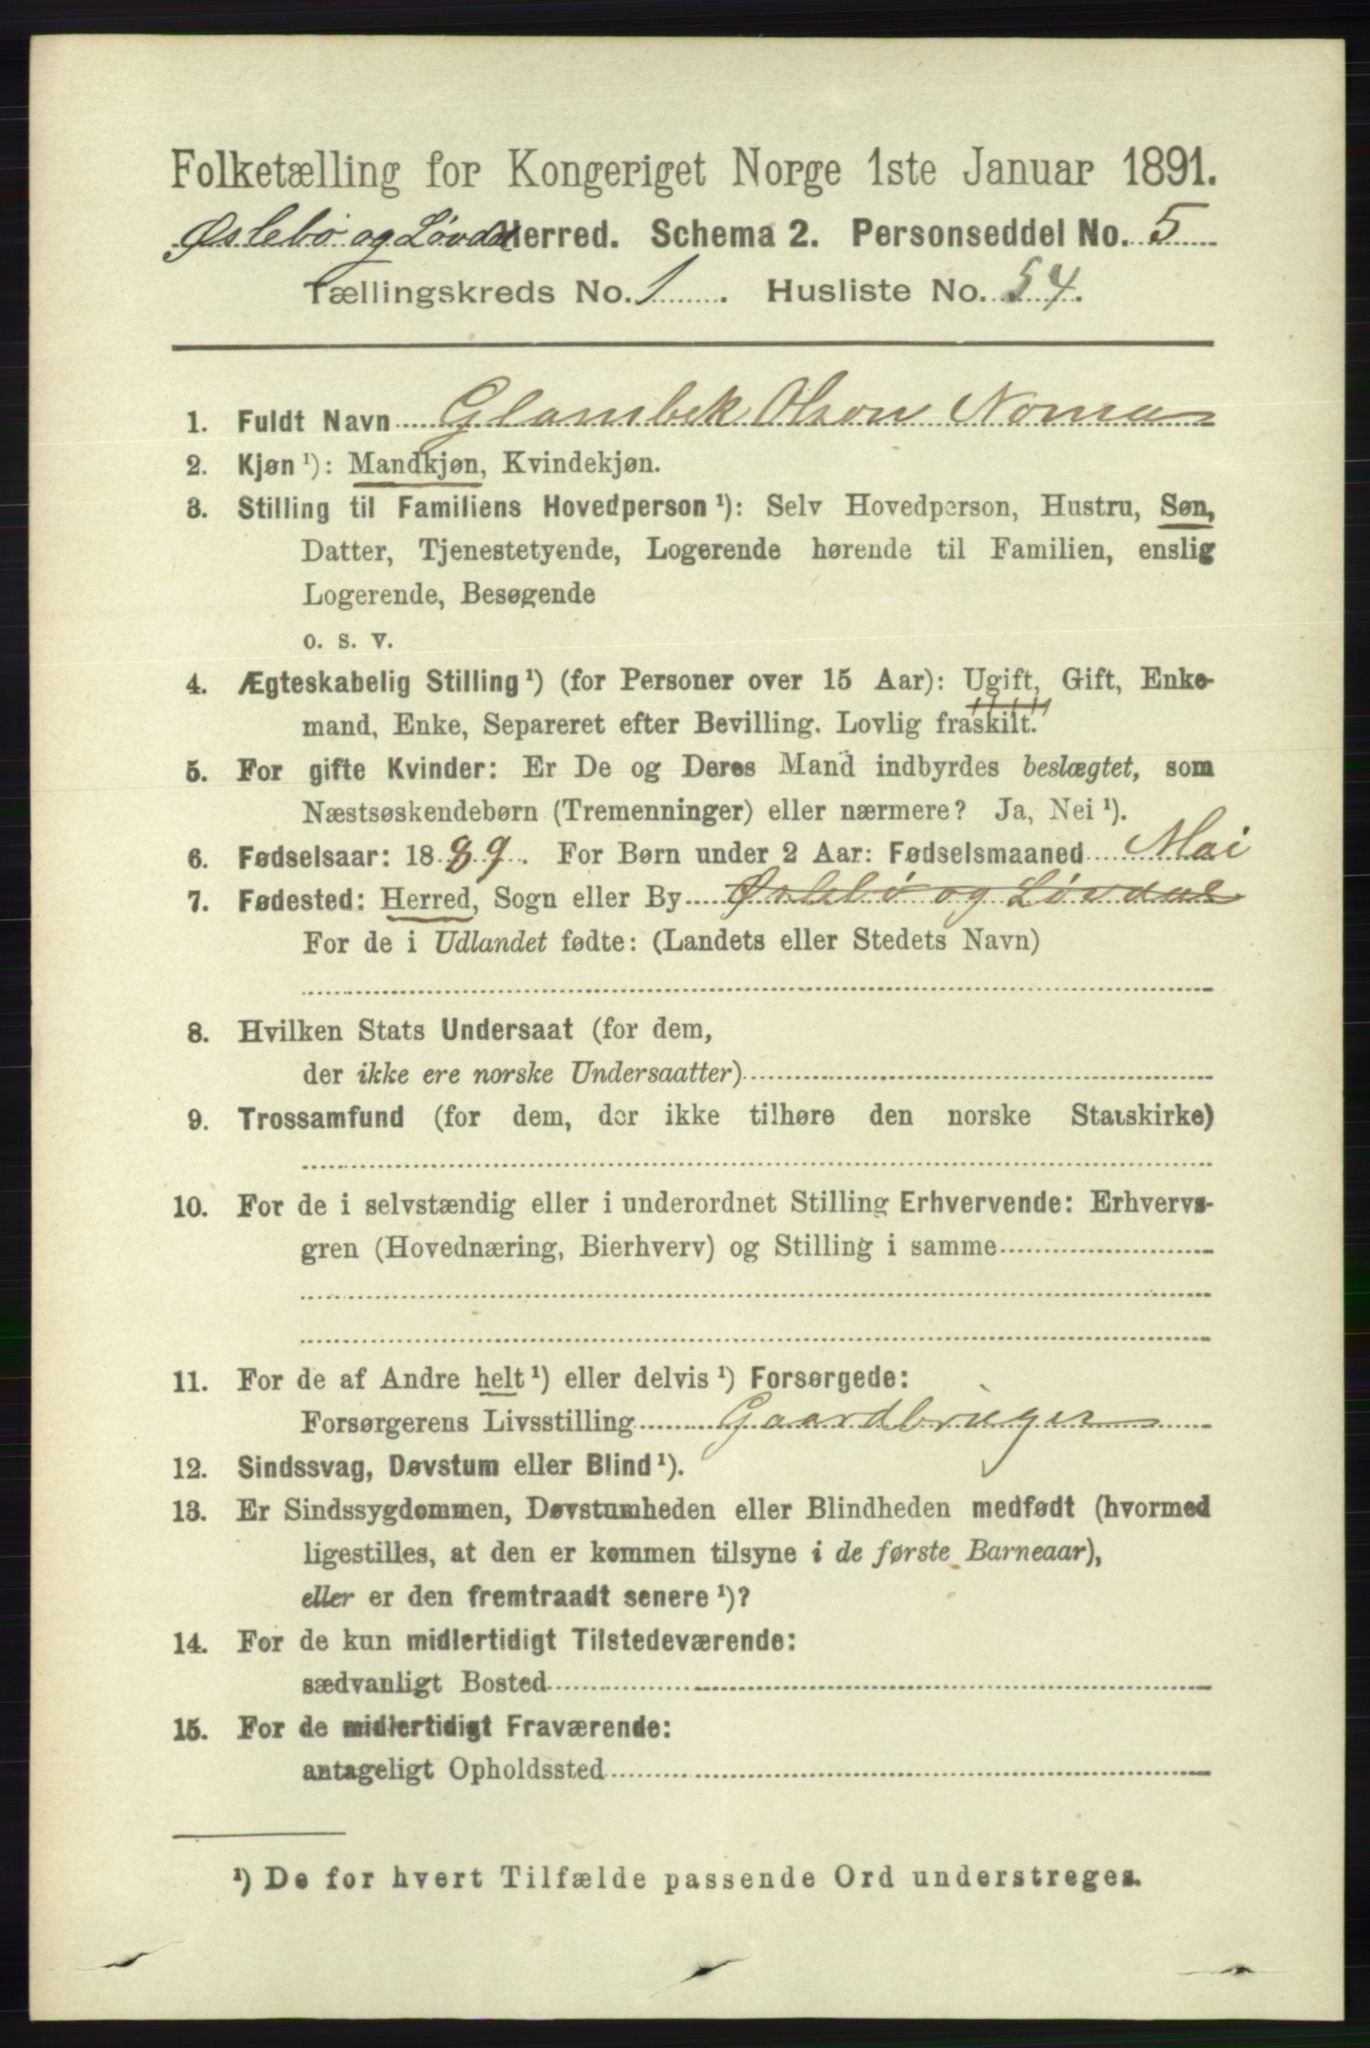 Folketælling for Kongeriget Norge 1ste Januar 1891.
Øslebø og Løvdal Herred. Schema 2. Personseddel No. 5
Tællingskreds No. 1. Husliste No. 54.
1. Fuldt Navn Glambek Olson Noma
2. Kjøn ¹): Mandkjøn, Kvindekjøn.
3. Stilling til Familiens Hovedperson ¹): Selv Hovedperson, Hustru, Søn,
Datter, Tjenestetyende, Logerende hørende til Familien, enslig
Logerende, Besøgende
o. s. v.
4. Ægteskabelig Stilling ¹) (for Personer over 15 Aar): Ugift, Gift, Enke-
mand, Enke, Separeret efter Bevilling. Lovlig fraskilt.
5. For gifte Kvinder: Er De og Deres Mand indbyrdes beslægtet, som
Næstsøskendebørn (Tremenninger) eller nærmere? Ja, Nei ¹).
6. Fødselsaar: 1889. For Børn under 2 Aar: Fødselsmaaned Mai
7. Fødested: Herred, Sogn eller By Øslebø og Løvdal
For de i Udlandet fødte: (Landets eller Stedets Navn)
8. Hvilken Stats Undersaat (for dem,
der ikke ere norske Undersaatter)
9. Trossamfund (for dem, der ikke tilhøre den norske Statskirke)
10. For de i selvstændig eller i underordnet Stilling Erhvervende: Erhvervs-
gren (Hovednæring, Bierhverv) og Stilling i samme
11. For de af Andre helt ¹) eller delvis ¹) Forsørgede:
Forsørgerens Livsstilling Gaardbruger
12. Sindssvag, Døvstum eller Blind ¹).
13. Er Sindssygdommen, Døvstumheden eller Blindheden medfødt (hvormed
ligestilles, at den er kommen tilsyne i de første Barneaar),
eller er den fremtraadt senere ¹)?
14. For de kun midlertidigt Tilstedeværende:
sædvanligt Bosted
15. For de midlertidigt Fraværende:
antageligt Opholdssted
¹) De for hvert Tilfælde passende Ord understreges.